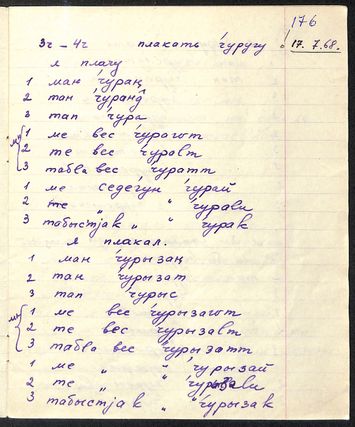 176
3г – 4г плакать ҷуругу 17. 7.68.
я плачу
1 ман ҷураң
2 тан ҷуранд
3 тап ҷура
мн 1 ме вес ҷурагыт
2 те вес ҷуралт
3 табла вес ҷуратт
1 ме седегун ҷурай
2 те " " ҷурали
3 табыстјак " " ҷурак
я плакал.
1 ман ҷурызаң
2 тан ҷурызат
3 тап ҷурыс
мн 1 ме вес ҷурызагыт
2 те вес ҷурызалт
3 табла вес ҷурызатт
1 ме " " ҷурызай
2 те " " ҷурызали
3 табыстјак " " ҷурызак